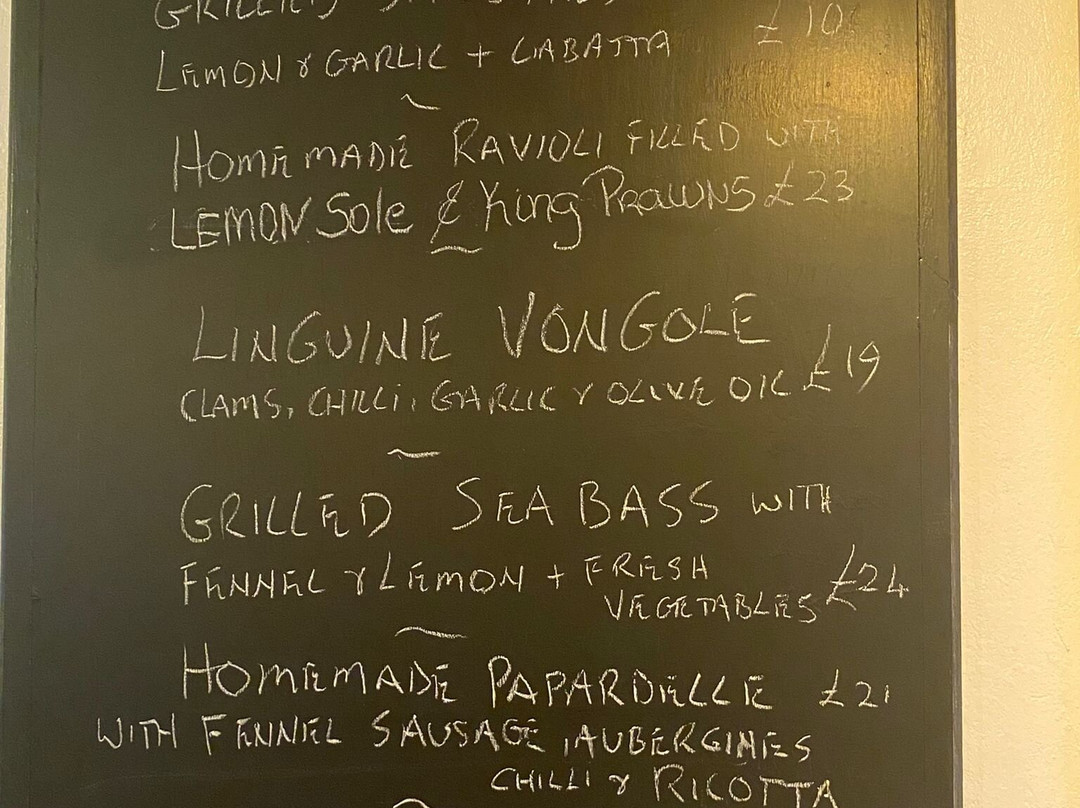 GRILLED
£10
LEMON & GARLIC + CIABATTA
HOMEMADE RAVIOLI FILLED WITH
LEMON Sole & King PRAWNS £23
LINGUINE VONGOLE
CLAMS, CHILLI, GARLIC & OLIVE OIL £19
GRILLED SEA BASS WITH
FENNEL & LEMON + FRESH
VEGETABLES £24
HOMEMADE PAPARDELLE £21
WITH FENNEL SAUSAGE, AUBERGINES
CHILLI & RICOTTA